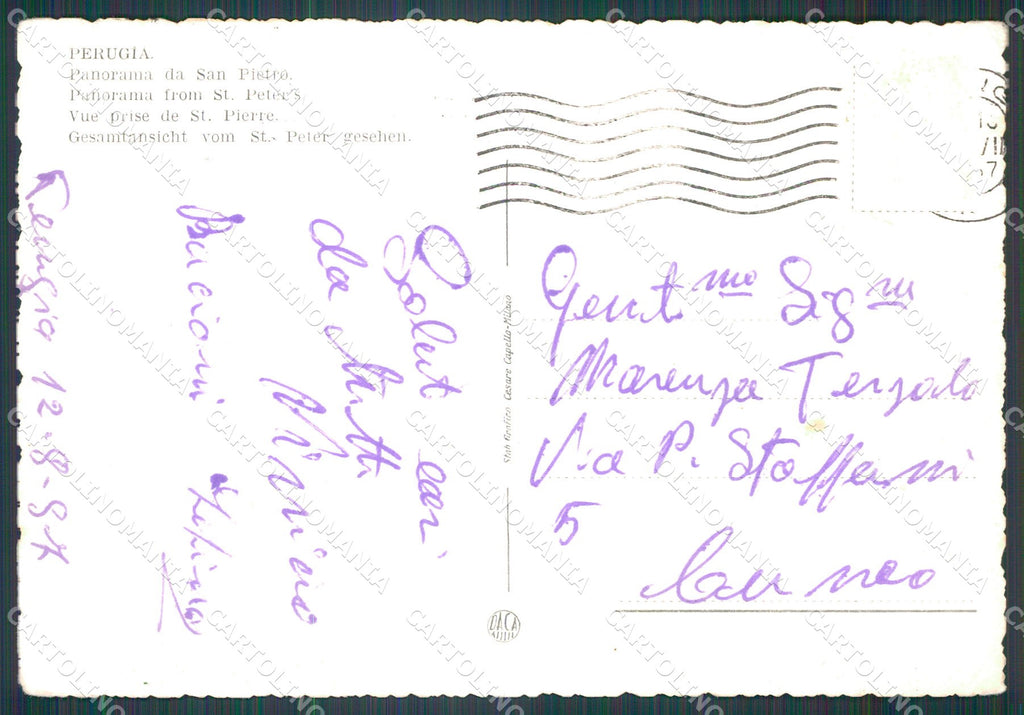 PERUGIA.
Panorama da San Pietro.
Panorama from St. Peter's
Vue prise de St. Pierre.
Gesamtansicht vom St. Peter gesehen.
Perugia 12-8-57
Salut cari
da tutti
Bacioni
Stab. Grafico Cesare Capello-Milano
Gentma Sigra
Marenza
Via P.
5
Cuneo
DACA
CARTOLINOMANIA